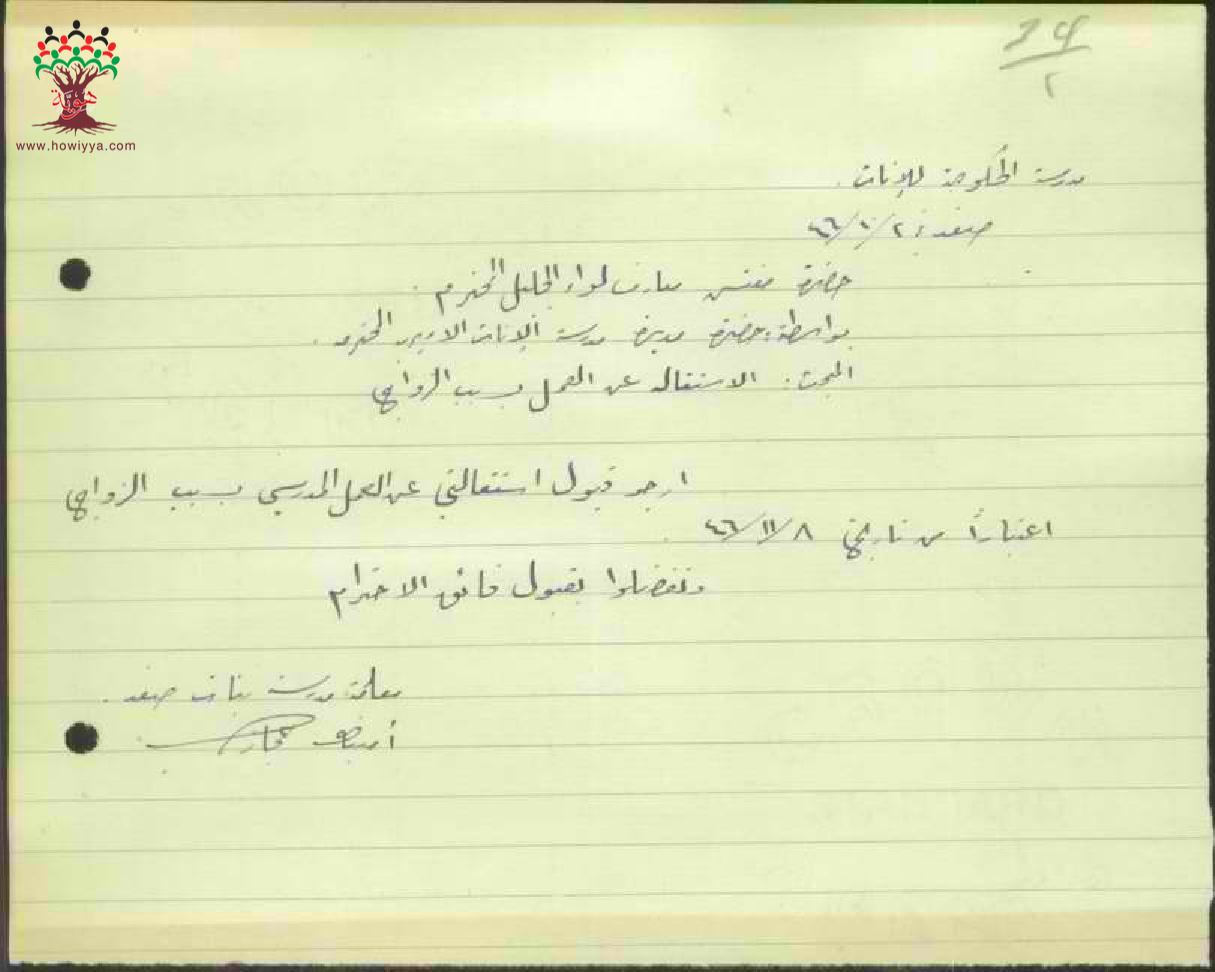 24
٢
هوية
www.howiyya.com
مدرسة الحكومة للاناث.
صفد: ٤٦/١٠/٢
حضرة مفتش معارف لواء الجليل المحترم.
بواسطة: حضرة مديرة مدرسة الاناث الاميرية المحترمة.
المبحث: الاستقاله عن العمل بسبب الزواج
ارجو قبول استقالتي عن العمل المدرسي بسبب الزواج
اعتباراً من تاريخ ٤٦/١١/٨.
وتفضلوا بقبول فائق الاحترام
معلمة مدرسة بنات صفد.